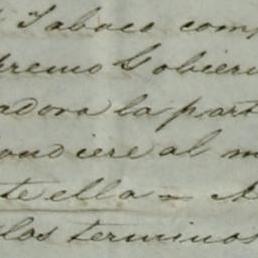 Tabaco com
premo Gobier
adora la part
ondiere al m
te ella = A
los terminos